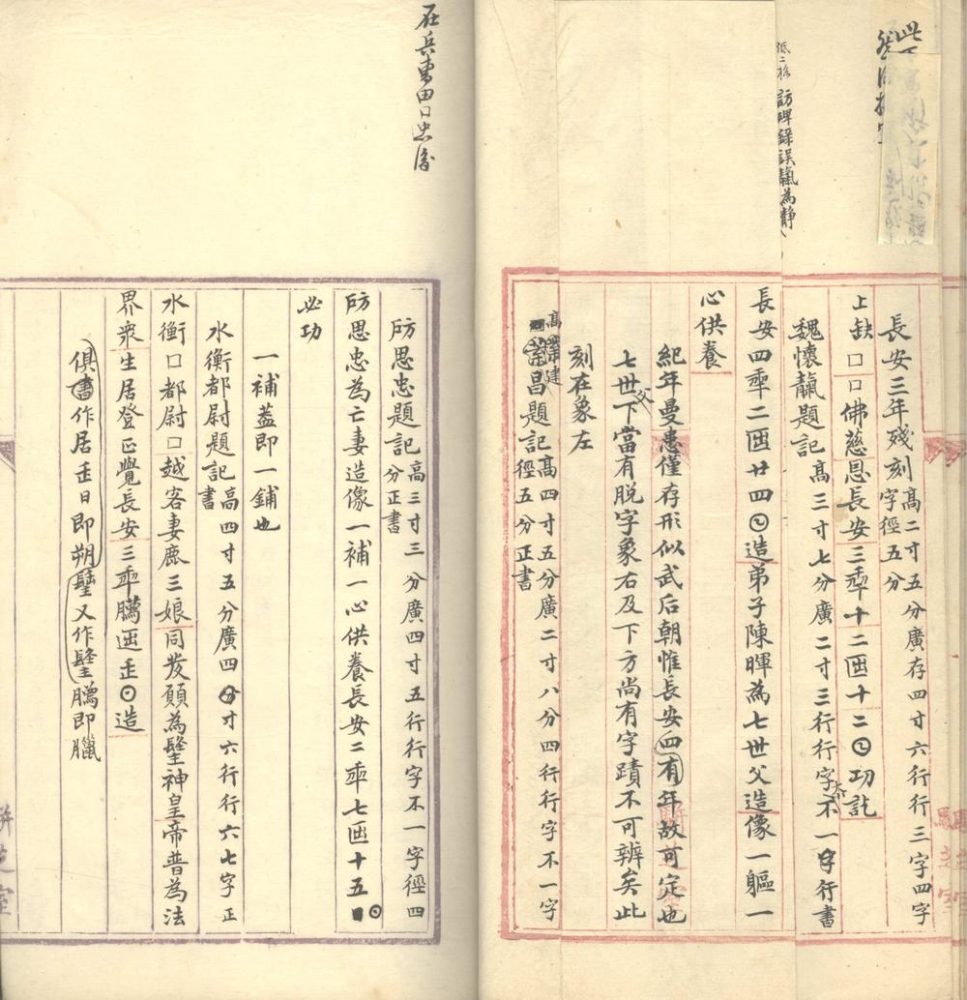 低二格 訪碑錄誤靝為靜
長安三年殘刻高二寸五分廣存四寸六行行三字四字
字徑五分
上缺口口佛慈恩長安三𠡦十二𠥱十二𡆠功訖
魏懷靝題記高三寸七分廣二寸三行行字不一行書
長安四𠡦二𠥱廿四𡆠造弟子陳暉為七世父造像一軀一
心供養
紀年曼患僅存形似武后朝惟長安四有年故可定也
七世父下當有脫字象右及下方尚有字蹟不可辨矣此
刻在象左
昌題記高四寸五分廣二寸八分四行行字不一字
徑五分正書
在兵東田口思後
防思忠題記高三寸三分廣四寸五行行字不一字徑四
分正書
防思忠為亡妻造像一補一心供養長安二𠡦七𠥱十五𡆠
必功
一補蓋即一鋪也
水衡都尉題記高四寸五分廣四寸六行行六七字正
書
水衡口都尉口越客妻鹿三娘同发願為𨲢神皇帝普為法
界衆生居登正覺長安三𠡦臈𠥱𠙺𡆠造
俱書作居𠙺日即朔𨲢又作𨲢臈即臘